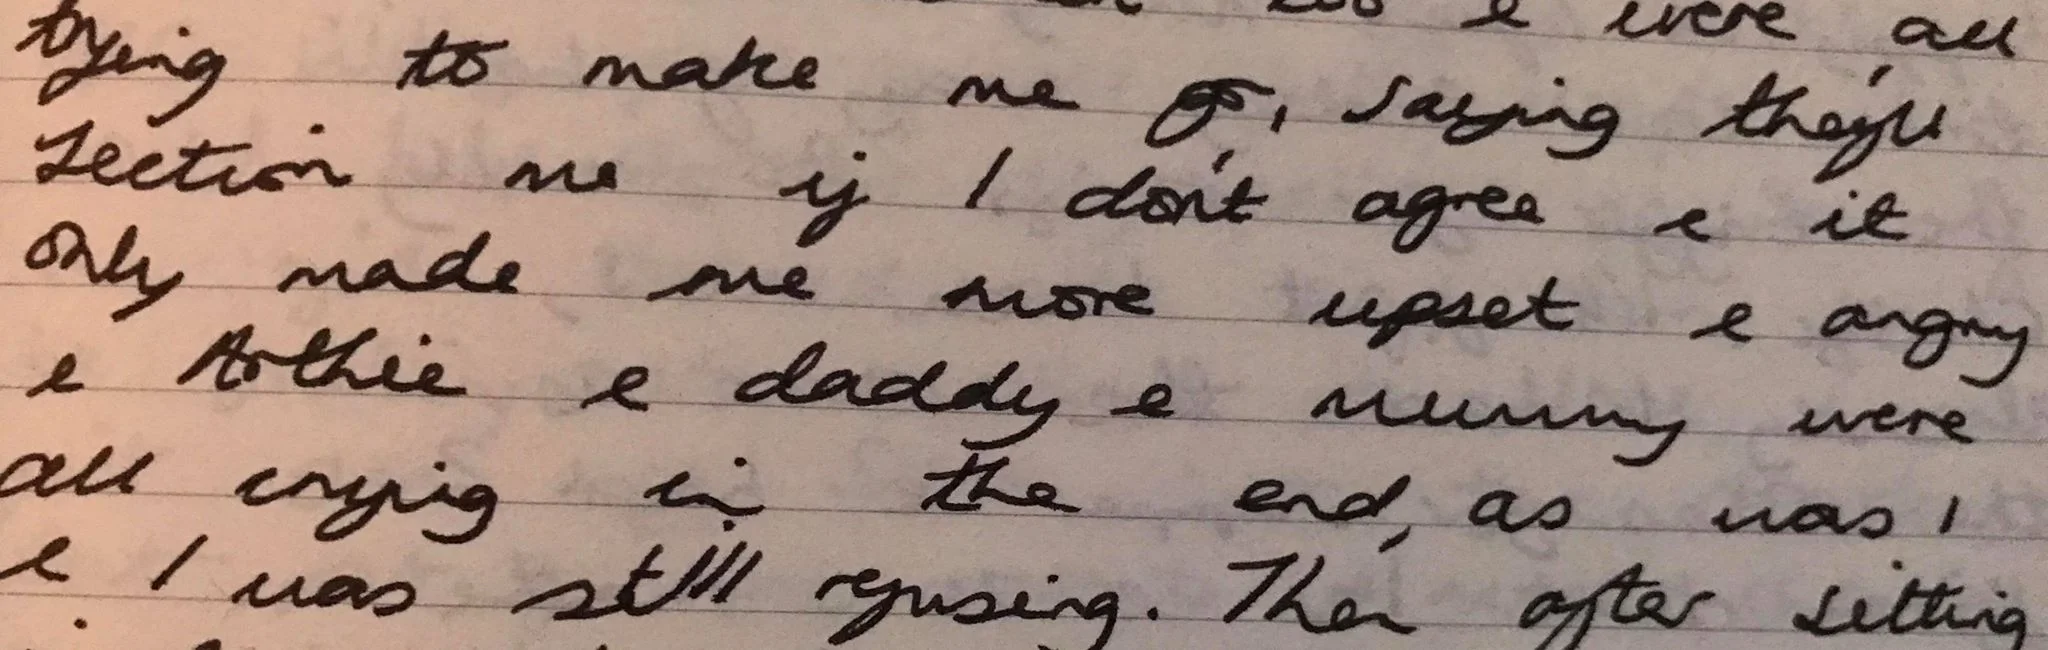 too e were all
trying to make me go, saying they'll
section me if I don't agree e it
only made me more upset e angry
e Arthie e daddy e mummy were
all crying in the end, as was I
e I was still refusing. Then after sitting